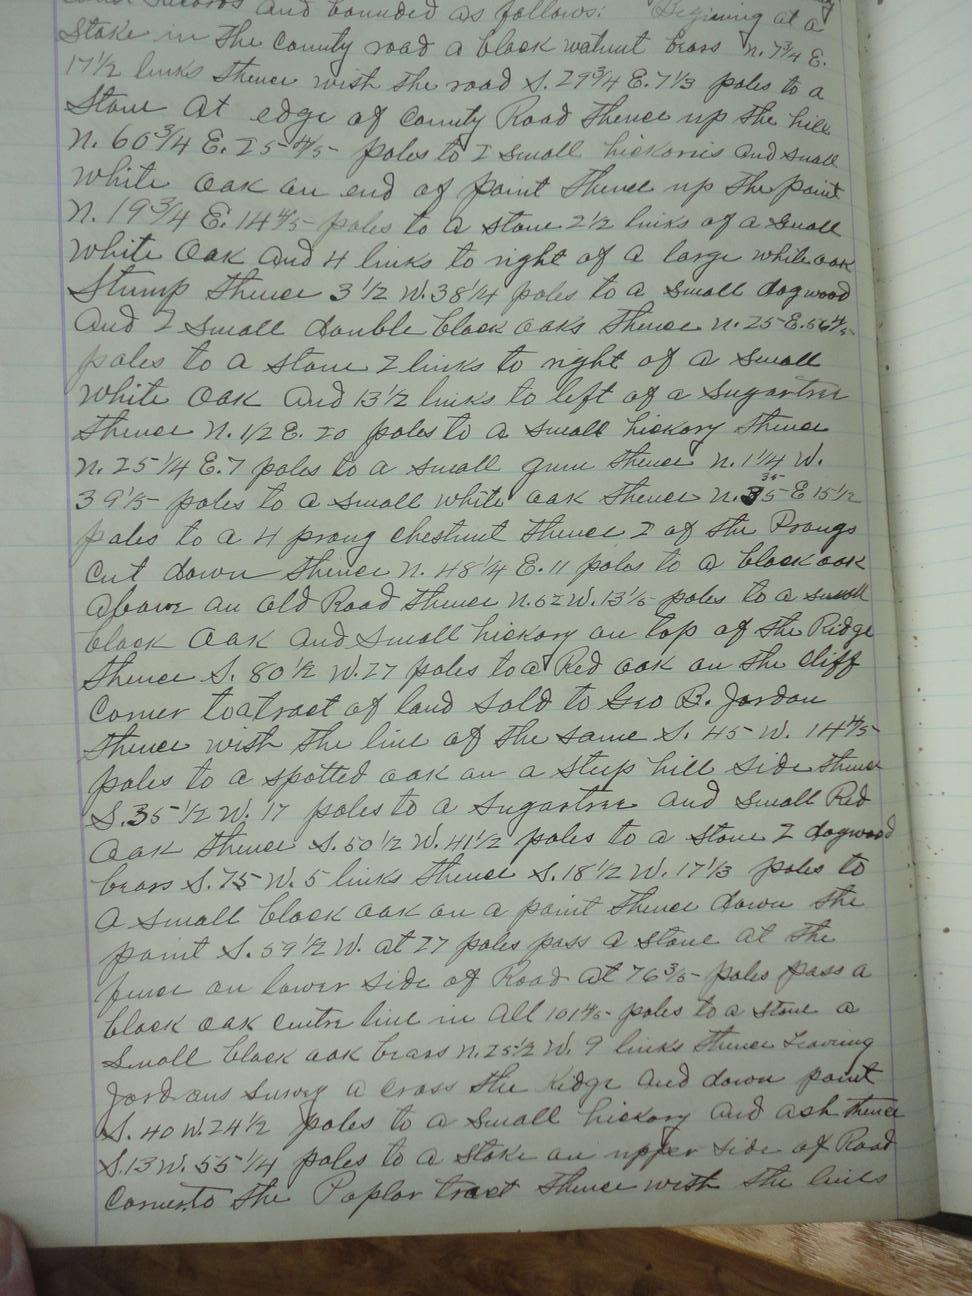 Court Records and bounded as follows: Begining at a
Stake in the County road a black walnut bears N. 7 3/4 E.
17 1/2 links thence with the road S. 29 3/4 E. 7 1/3 poles to a
Stone at edge of County Road thence up the hill
N. 60 3/4 E. 25 4/5 poles to 2 small hickories and small
white oak on end of point thence up the point
N. 19 3/4 E. 14 4/5 poles to a stone 2 1/2 links of a small
white oak and 4 links to right of a large white oak
Stump thence 3 1/2 W. 38 1/4 poles to a small dogwood
and 2 small double black oaks thence N. 25 E. 56 4/5
poles to a stone 2 links to right of a small
white oak and 13 1/2 links to left of a Sugartree
thence N. 1/2 E. 20 poles to a small hickory thence
N. 25 1/4 E. 7 poles to a small gum thence N. 1 1/4 W.
39 1/5 poles to a small white oak thence N. 35 E 15 1/2
poles to a 4 prong chestnut thence 2 of the Prongs
cut down thence N. 48 1/4 E. 11 poles to a black oak
above an old Road thence N. 52 W. 13 1/5 poles to a small
black oak and small hickory on top of the Ridge
thence S. 80 1/2 W. 27 poles to a Red oak on the cliff
corner to a tract of land sold to Geo B. Jordan
thence with the line of the same S. 45 W. 14 4/5
poles to a spotted oak on a steep hill side thence
S. 35 1/2 W. 17 poles to a Sugartree and small Red
oak thence S. 50 1/2 W. 41 1/2 poles to a stone 2 dogwood
bears S. 75 W. 5 links thence S. 18 1/2 W. 17 1/3 poles to
a small black oak on a point thence down the
point S. 59 1/2 W. at 27 poles pass a stone at the
fence on lower side of Road at 76 3/5 poles pass a
black oak centre line in all 101 4/5 poles to a stone a
small black oak bears N. 25 1/2 W. 9 links thence Leaving
Jordans survey a cross the Ridge and down point
S. 40 W. 24 1/2 poles to a small hickory and ash thence
S. 13 W. 55 1/4 poles to a stake on upper side of Road
corner to the Poplar tract thence with the lines